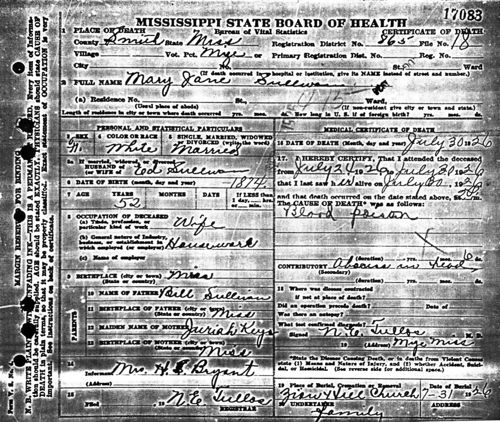 17083
MISSISSIPPI STATE BOARD OF HEALTH
1 PLACE OF DEATH Bureau of Vital Statistics CERTIFICATE OF DEATH
County State Miss Registration District No. 365 File No. 18
Village Vot. Pct. or Primary Registration Dist. No. Reg. No.
City No. St., Ward
(If death occurred in hospital or institution, give its NAME instead of street and number.)
2 FULL NAME Mary Jane Sullivan
(a) Residence No. St., Ward,
(Usual place of abode) (If non-resident give city or town and state)
Length of residence in city or town where death occurred yrs. mos. ds. How long in U. S. if of foreign birth? yrs. mos. ds.
PERSONAL AND STATISTICAL PARTICULARS
3 SEX 4 COLOR or RACE 5 SINGLE, MARRIED, WIDOWED or DIVORCED (write the word)
White Married
5a If married, widowed, or divorced
HUSBAND of
(or) WIFE of Sullivan
6 DATE OF BIRTH (month, day and year) 1874
7 AGE YEARS MONTHS DAYS If LESS than
52 1 day, hrs.
or min.
8 OCCUPATION OF DECEASED
(a) Trade, profession, or
particular kind of work Wife
(b) General nature of industry,
business, or establishment in
which employed (or employer) Housework
(c) Name of employer
9 BIRTHPLACE (city or town) Miss
(State or country)
PARENTS
10 NAME OF FATHER Bill Sullivan
11 BIRTHPLACE OF FATHER (city or town)
(State or country) Miss
12 MAIDEN NAME OF MOTHER Keys
13 BIRTHPLACE OF MOTHER (city or town)
(State or country) Miss
14
Informant Mrs. H. E. Bryant
(Address)
15
Filed N. E. Tullos
REGISTRAR
MEDICAL CERTIFICATE OF DEATH
16 DATE OF DEATH (month, day and year) July 30 1926
17 I HEREBY CERTIFY, That I attended the deceased
from July 24 1926 to July 30 1926
that I last saw her alive on July 30 1926
and that death occurred on the date stated above, at m.
The CAUSE OF DEATH* was as follows:
Blood poison
(duration) yrs. mos. 6 ds.
CONTRIBUTORY Abscess in head
(Secondary)
(duration) yrs. mos. ds.
18 Where was disease contracted
if not at place of death?
Did an operation precede death? Date of
Was there an autopsy?
What test confirmed diagnosis?
Signed N. E. Tullos
Miss
*State the Disease Causing Death, or in deaths from Violent Causes
state (1) Means and Nature of Injury, and (2) whether Accident, Suicidal, or Homicidal. (See reverse side for additional space.)
19 Place of Burial, Cremation or Removal Date of Burial
Zion Hill Church 7-31 1926
20 UNDERTAKER
Family
MARGIN RESERVED FOR BINDING
Form V. S. No.